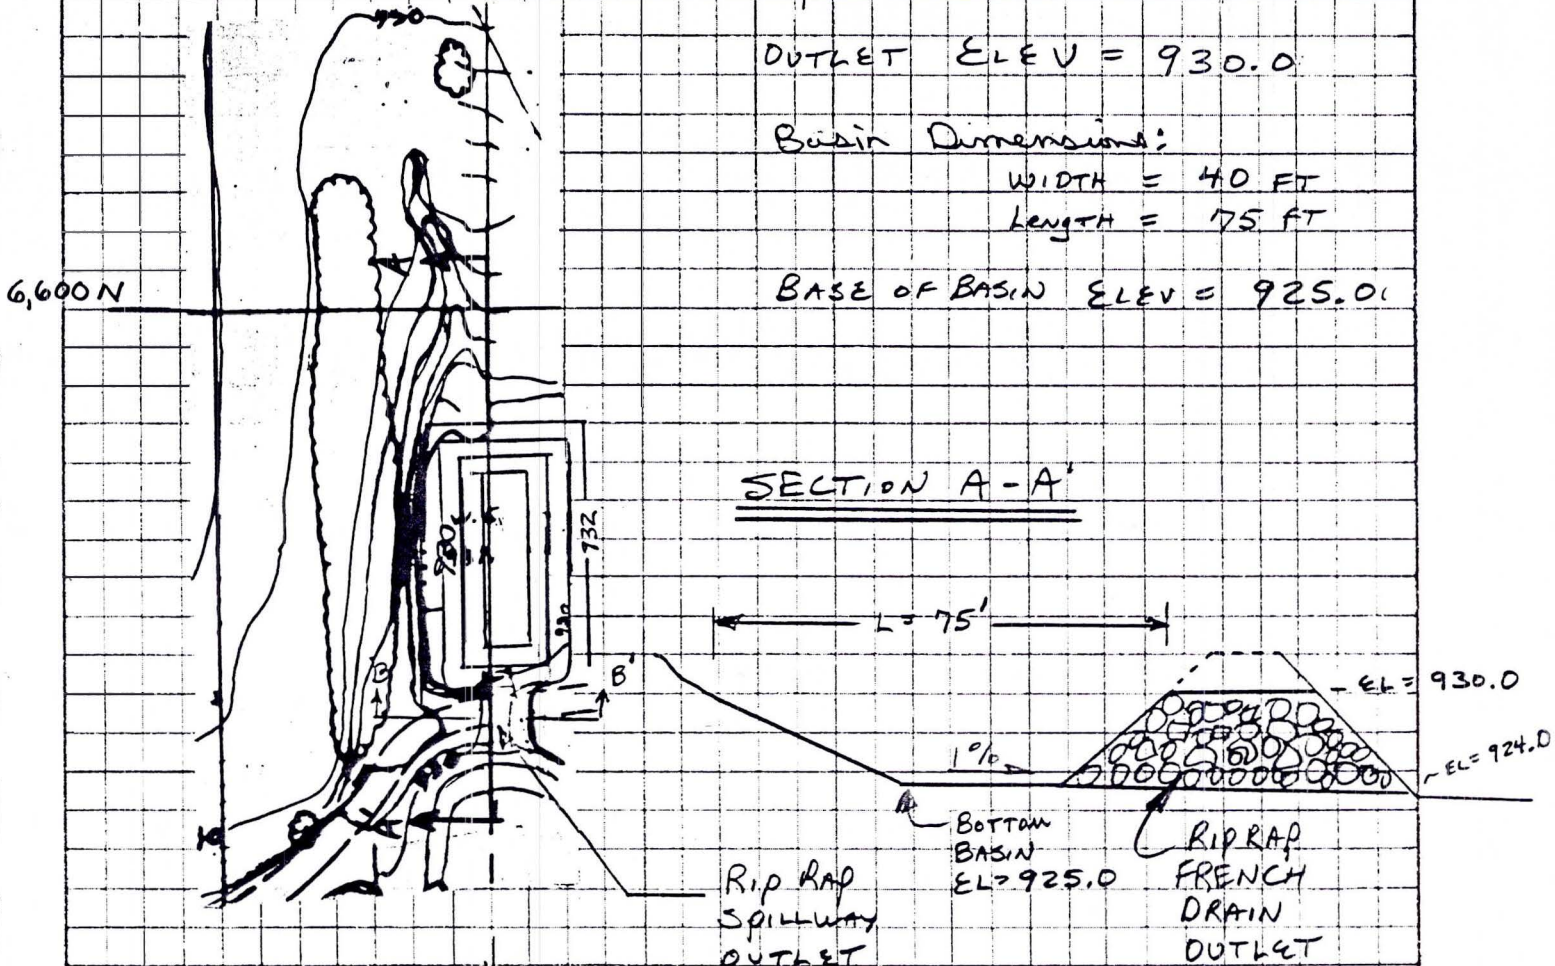 OUTLET ELEV = 930.0
Basin Dimensions:
WIDTH = 40 FT
Length = 75 FT
6,600N
BASE OF BASIN ELEV = 925.0
SECTION A-A'
932
930
B
B'
L = 75'
EL = 930.0
1%
EL = 924.0
BOTTOM
BASIN
EL = 925.0
RIP RAP
FRENCH
DRAIN
OUTLET
RIP RAP
SPILLWAY
OUTLET